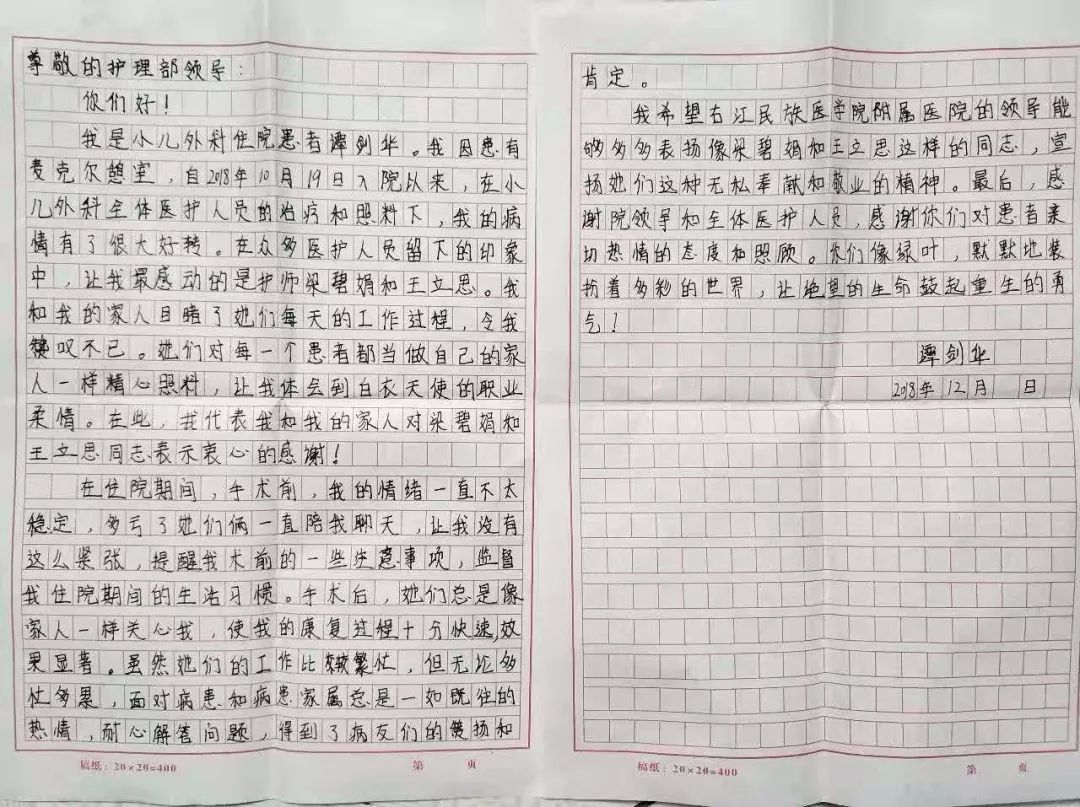 尊敬的护理部领导：
你们好！
我是小儿外科住院患者谭剑华。我因患有
麦克尔憩室，自2018年10月19日入院以来，在小
儿外科全体医护人员的治疗和照料下，我的病
情有了很大好转。在众多医护人员留下的印象
中，让我最感动的是护师梁碧娟和王立思。我
和我的家人目睹了她们每天的工作过程，令我
叹不已。她们对每一个患者都当做自己的家
人一样精心照料，让我体会到白衣天使的职业
柔情。在此，我代表我和我的家人对梁碧娟和
王立思同志表示衷心的感谢！
在住院期间，手术前，我的情绪一直不太
稳定，多亏了她们俩一直陪我聊天，让我没有
这么紧张，提醒我术前的一些注意事项，监督
我住院期间的生活习惯。手术后，她们总是像
家人一样关心我，使我的康复过程十分快速，效
果显著。虽然她们的工作比较繁忙，但无论多
忙多累，面对病患和病患家属总是一如既往的
热情，耐心解答问题，得到了病友们的赞扬和
稿纸：20×20=400 第 页
肯定。
我希望右江民族医学院附属医院的领导能
够多多表扬像梁碧娟和王立思这样的同志，宣
扬她们这种无私奉献和敬业的精神。最后，感
谢院领导和全体医护人员，感谢你们对患者亲
切热情的态度和照顾。你们像绿叶，默默地装
扮着多彩的世界，让绝望的生命鼓起重生的勇
气！
谭剑华
2018年12月 日
稿纸：20×20=400 第 页